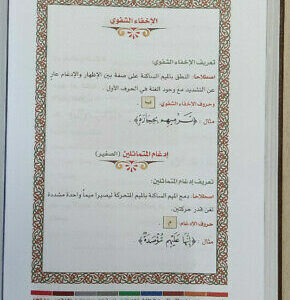 الإخفاء الشفوي
تعريف الإخفاء الشفوي:
اصطلاحا: النطق بالميم الساكنة على صفة بين الإظهار والإدغام عارٍ
عن التشديد مع وجود الغنة في الحرف الأول .
وحروف الإخفاء الشفوي: ب
مثال : ﴿تَرْمِيهِم بِحِجَارَةٍ﴾
إدغام المتماثلين (الصغير)
تعريف إدغام المتماثلين:
اصطلاحا: بدمج الميم الساكنة بالميم المتحركة ليصيرا ميماً واحدة مشددة
تغن قدر حركتين.
حروف الإدغام: م
مثال : ﴿إِنَّهَا عَلَيْهِم مُّؤْصَدَةٌ﴾